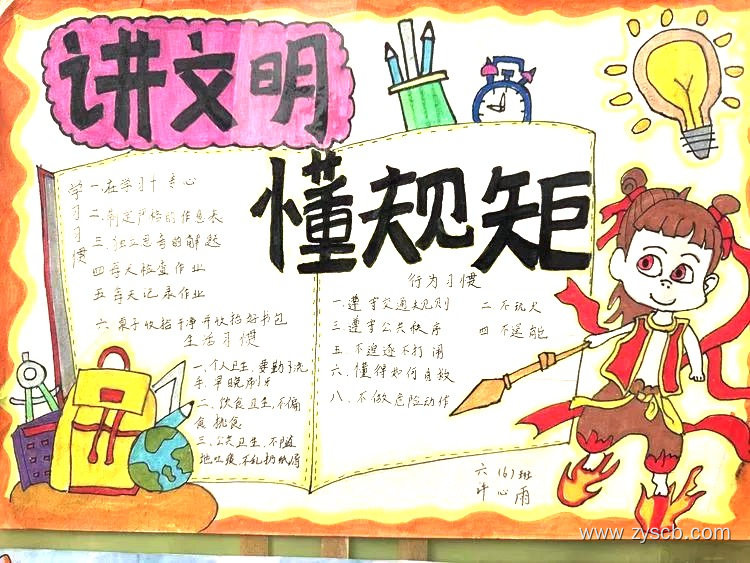 讲文明
懂规矩
学习习惯
一.在学习十专心
二.制定严格的作息表
三.独立思考的解题
四每天检查作业
五每天记录作业
六.桌子收拾干净并收拾好书包
生活习惯
一、个人卫生,要勤于洗
手,早晚刷牙
二、饮食卫生,不偏
食挑食
三、公共卫生,不随
地吐痰,不乱扔纸屑
行为习惯
一.遵守交通规则
二不玩火
三遵守公共秩序
四不逞能
五不追逐不打闹
六、懂得如何自救
八、不做危险动作
六(6)班
许心雨
www.zyscb.com